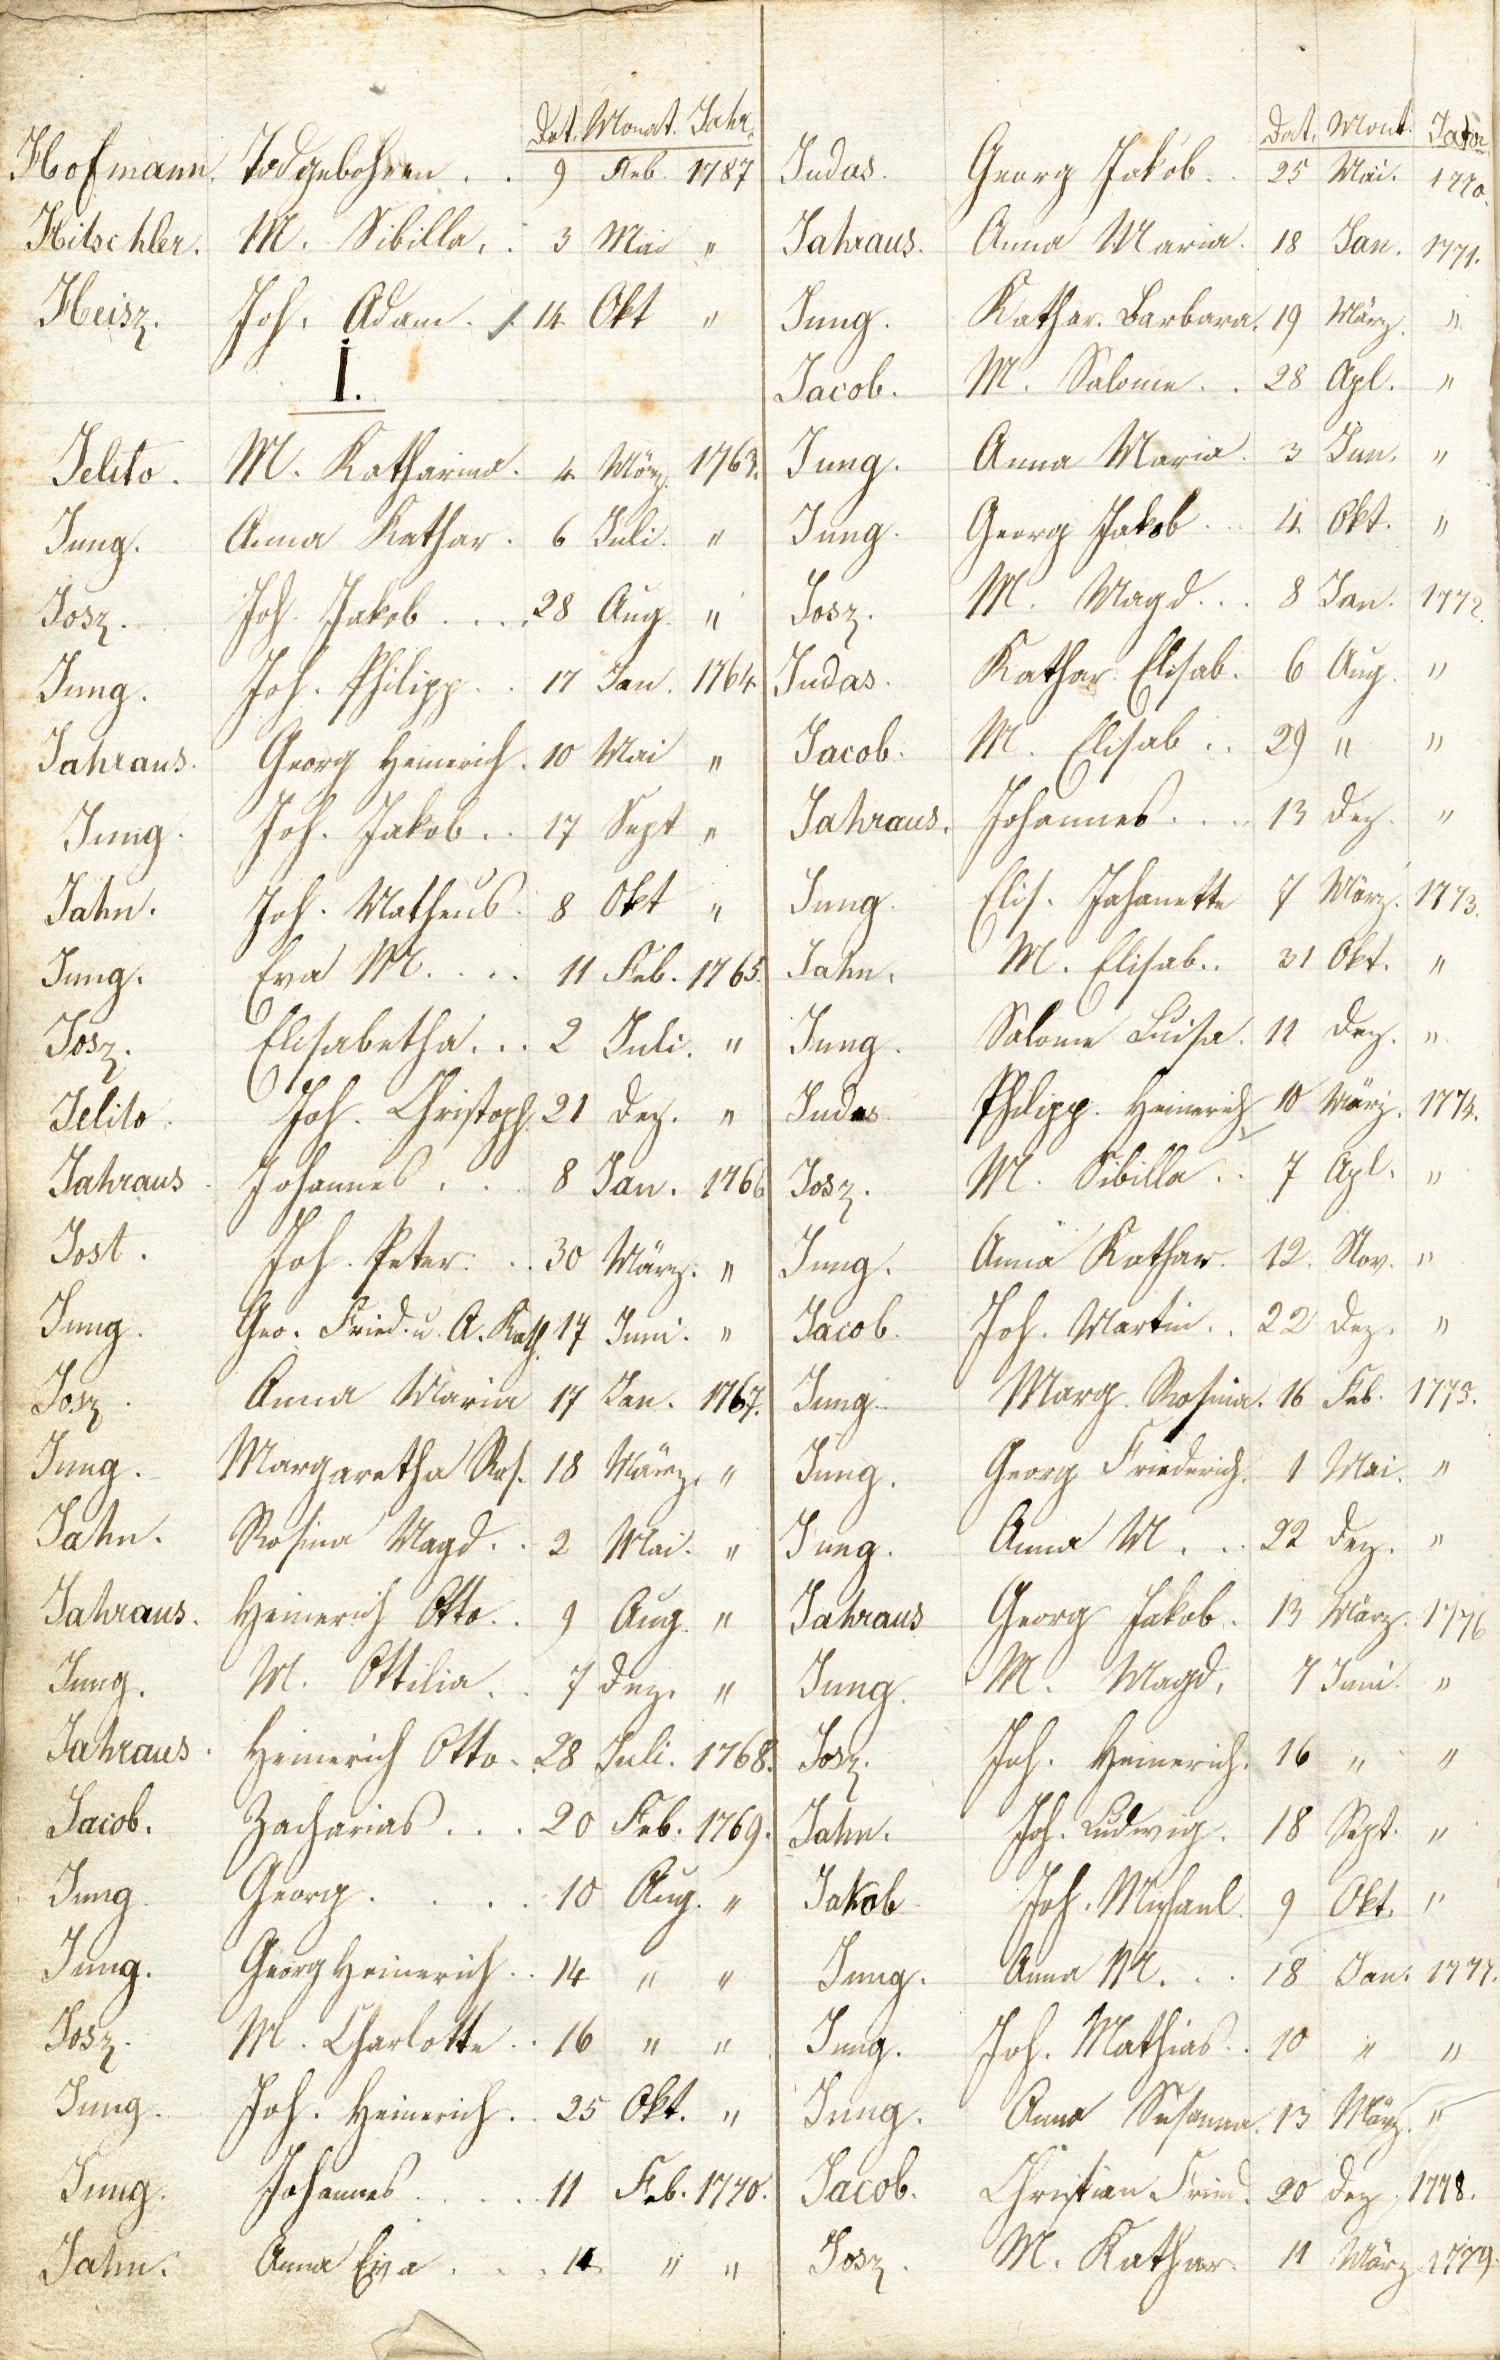 Dat. Monat. Jahr.
Hofmann. Todgebohren . . 9 Feb. 1787
Hitschler. M. Sibilla. . 3 Mai "
Heisz. Joh. Adam . 14 Okt "
I.
Jelito. M. Katharina. 4 März. 1763.
Jung. Anna Kathar. 6 Juli. "
Josz. Joh. Jakob . . . . 28 Aug. "
Jung. Joh. Philipp . . 17 Jan. 1764
Jahraus. Georg Heinerich. 10 Mai "
Jung. Joh. Jakob . . 17 Sept "
Jahn. Joh. Matheus. 8 Okt "
Jung. Eva M. . . . 11 Feb. 1765.
Josz. Elisabetha. . . 2 Juli. "
Jelito. Joh. Christoph. 21 Dez. "
Jahraus. Johannes . . . 8 Jan. 1766
Jost. Joh. Peter. . . 30 März. "
Jung. Geo. Fried. u. A. Kath. 17 Juni. "
Josz. Anna Maria 17 Jan. 1767.
Jung. Margaretha Ros. 18 März. "
Jahn. Rosina Magd. . . 2 Mai. "
Jahraus. Heinerich Otto. . 9 Aug. "
Jung. M. Ottilia. . 7 Dez. "
Jahraus. Heinerich Otto. 28 Juli. 1768.
Jacob. Zacharias . . . 20 Feb. 1769.
Jung. Georg . . . . 10 Aug. "
Jung. Georg Heinerich. . 14 " "
Josz. M. Charlotte . . 16 " "
Jung. Joh. Heinerich. . 25 Okt. "
Jung. Johannes . . . . 11 Feb. 1770.
Jahn. Anna Eva . . . 14 " "
Dat. Mont. Jahr.
Judas. Georg Jakob . . 25 Mai. 1770.
Jahraus. Anna Maria. 18 Jan. 1771.
Jung. Kathar. Barbara. 19 März. "
Jacob. M. Salome . . 28 Apl. "
Jung. Anna Maria. 3 Jun. "
Jung. Georg Jakob . . 4 Okt. "
Josz. M. Magd. . . 8 Jan. 1772.
Judas. Kathar. Elisab. 6 Aug. "
Jacob. M. Elisab . . 29 " "
Jahraus. Johannes . . . 13 Dez. "
Jung. Elis. Johanette 7 März. 1773.
Jahn. M. Elisab. . 31 Okt. "
Jung. Salome Luisa. 11 Dez. "
Judas Philipp. Heinerich 10 März. 1774.
Josz. M. Sibilla . . 7 Apl. "
Jung. Anna Kathar. 12. Nov. "
Jacob. Joh. Martin. . 22 Dez. "
Jung. Marg. Rosina. 16 Feb. 1775.
Jung. Georg Friederich. 1 Mai. "
Jung. Anna M . . . 22 Dez. "
Jahraus Georg Jakob. 13 März. 1776
Jung. M. Magd. 7 Juni. "
Josz. Joh. Heinerich. 16 " "
Jahn. Joh. Ludwig. 18 Sept. "
Jakob Joh. Michael. 9 Okt. "
Jung. Anna M. . . 18 Jan. 1777.
Jung. Joh. Mathias . . 10 " "
Jung. Anna Susanna. 13 März. "
Jacob. Christian Fried. 20 Dez. 1778.
Josz. M. Kathar. 11 März 1779.